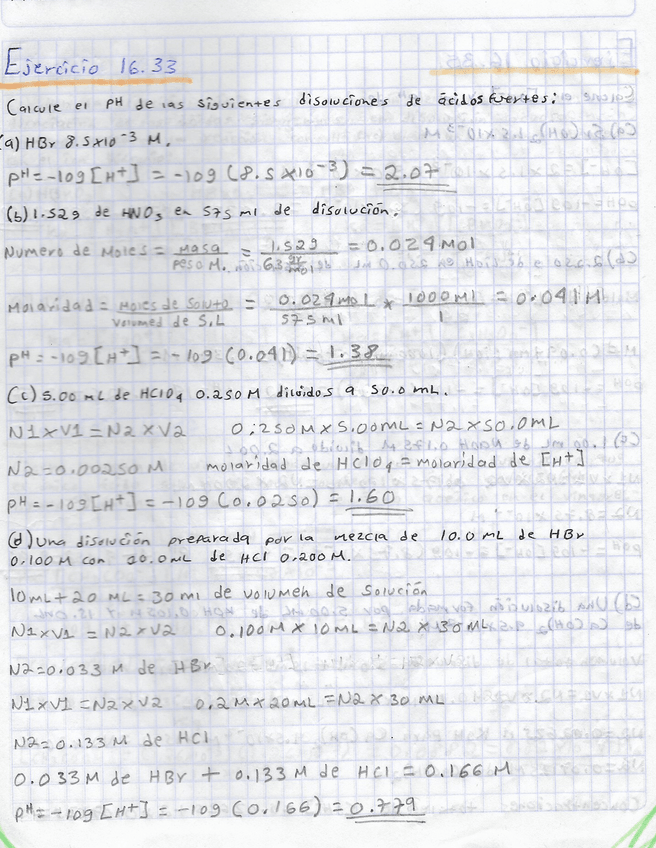 Ejercicio 16.33
Calcule el pH de las siguientes disoluciones de ácidos fuertes:
(a) HBr 8.5x10⁻³ M.
pH=-log[H+] = -log (8.5 x10⁻³) = 2.07
(b) 1.52g de HNO₃ en 575 ml de disolución.
Numero de Moles = masa/Peso M. = 1.52g/63 gr/mol = 0.024 Mol
Molaridad = Moles de Soluto/Volumed de S.L = 0.024 mol/575 ml * 1000 Ml/1 = 0.041 M
pH = -log[H+] = - log (0.041) = 1.38
(c) 5.00 mL de HClO₄ 0.250 M diluidos a 50.0 mL.
N1xV1=N2xV2 0.250M x 5.00mL = N2 x 50.0mL
N2=0.00250 M molaridad de HClO₄ = molaridad de [H+]
pH=-log[H+] = -log (0.0250) = 1.60
(d) Una disolución preparada por la mezcla de 10.0 mL de HBr
0.100 M con 20.0 mL de HCl 0.200 M.
10mL+20 mL = 30 ml de volumen de solución
N1xV1 = N2xV2 0.100M x 10mL = N2 x 30mL
N2=0.033 M de HBr
N1xV1 = N2xV2 0.2M x 20mL = N2 x 30 mL
N2=0.133 M de HCl
0.033M de HBr + 0.133 M de HCl = 0.166 M
pH=-log[H+] = -log (0.166) = 0.779